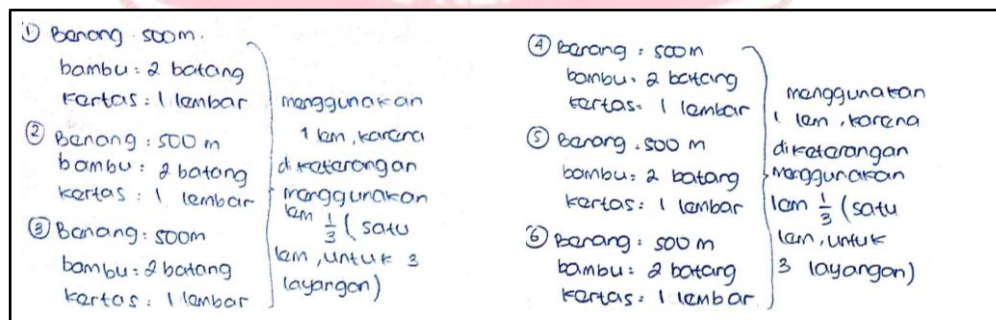 ① Benang 500m.
bambu : 2 batang
kertas : 1 lembar
② Benang : 500 m
bambu : 2 batang
kertas : 1 lembar
③ Benang : 500m
bambu : 2 batang
kertas : 1 lembar
menggunakan
1 lem, karena
di keterangan
menggunakan
lem 1/3 (satu
lem, untuk 3
layangan)
④ Barang : 500m
bambu : 2 batang
kertas : 1 lembar
⑤ Benang : 500 m
bambu : 2 batang
kertas : 1 lembar
⑥ Benang : 500 m
bambu : 2 batang
kertas : 1 lembar
menggunakan
1 lem, karena
diketerangan
menggunakan
lem 1/3 (satu
lem, untuk
3 layangan)